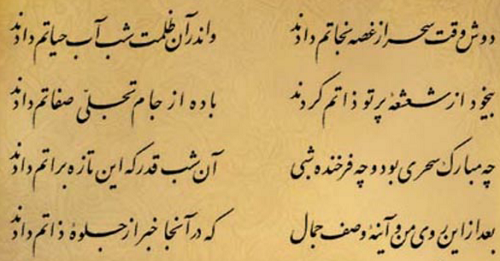 دوش وقت سحر از غصه نجاتم دادند واندر آن ظلمت شب آب حیاتم دادند
بیخود از شعشعهٔ پرتو ذاتم کردند باده از جام تجلّی صفاتم دادند
چه مبارک سحری بود و چه فرخنده شبی آن شب قدر که این تازه براتم دادند
بعد از این روی من و آینهٔ وصف جمال که در آنجا خبر از جلوهٔ ذاتم دادند